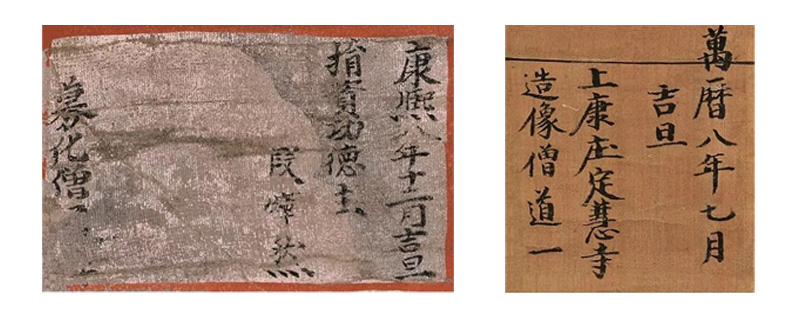 康熙八年十二月吉旦
捐資功德主
段烽然
募化僧
萬曆八年七月
吉旦
上康庄定慧寺
造像僧道一